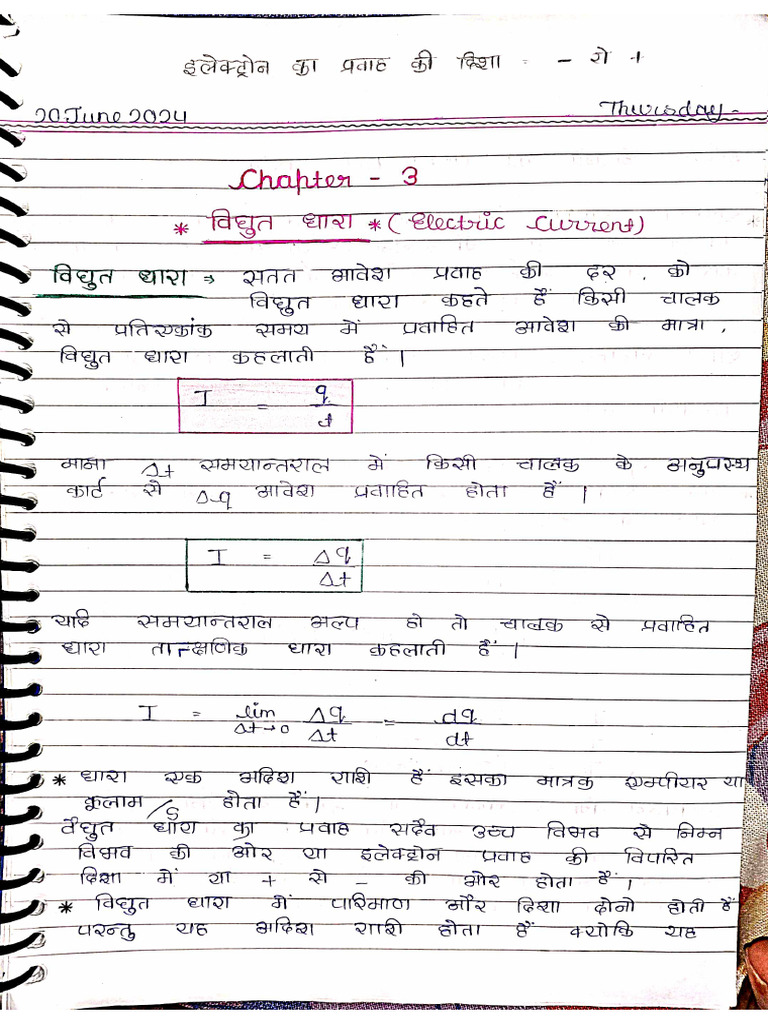 इलेक्ट्रोन का प्रवाह की दिशा = - से +
20 June 2024 Thursday -
Chapter - 3
* विधुत धारा * ( Electric Current)
विधुत धारा ⇒ सतत आवेश प्रवाह की दर , को
विधुत धारा कहते हैं किसी चालक
से प्रतिएकांक समय में प्रवाहित आवेश की मात्रा ,
विधुत धारा कहलाती हैं ।
I = q/t
माना Δt समयान्तराल में किसी चालक के अनुपस्थ
कार्ट से Δq आवेश प्रवाहित होता हैं ।
I = Δq/Δt
यदि समयान्तराल अल्प हो तो चालक से प्रवाहित
धारा तात्क्षणिक धारा कहलाती हैं ।
I = lim Δt→0 Δq/Δt = dq/dt
* धारा एक अदिश राशि हैं इसका मात्रक एम्पीयर या
कूलाम /S होता हैं ।
वैधुत धारा का प्रवाह सदैव उच्च विभव से निम्न
विभव की ओर या इलेक्ट्रोन प्रवाह की विपरित
दिशा में या + से - की ओर होता हैं ।
* विधुत धारा में परिमाण और दिशा दोनो होती हैं
परन्तु यह अदिश राशी होता हैं क्योकि यह